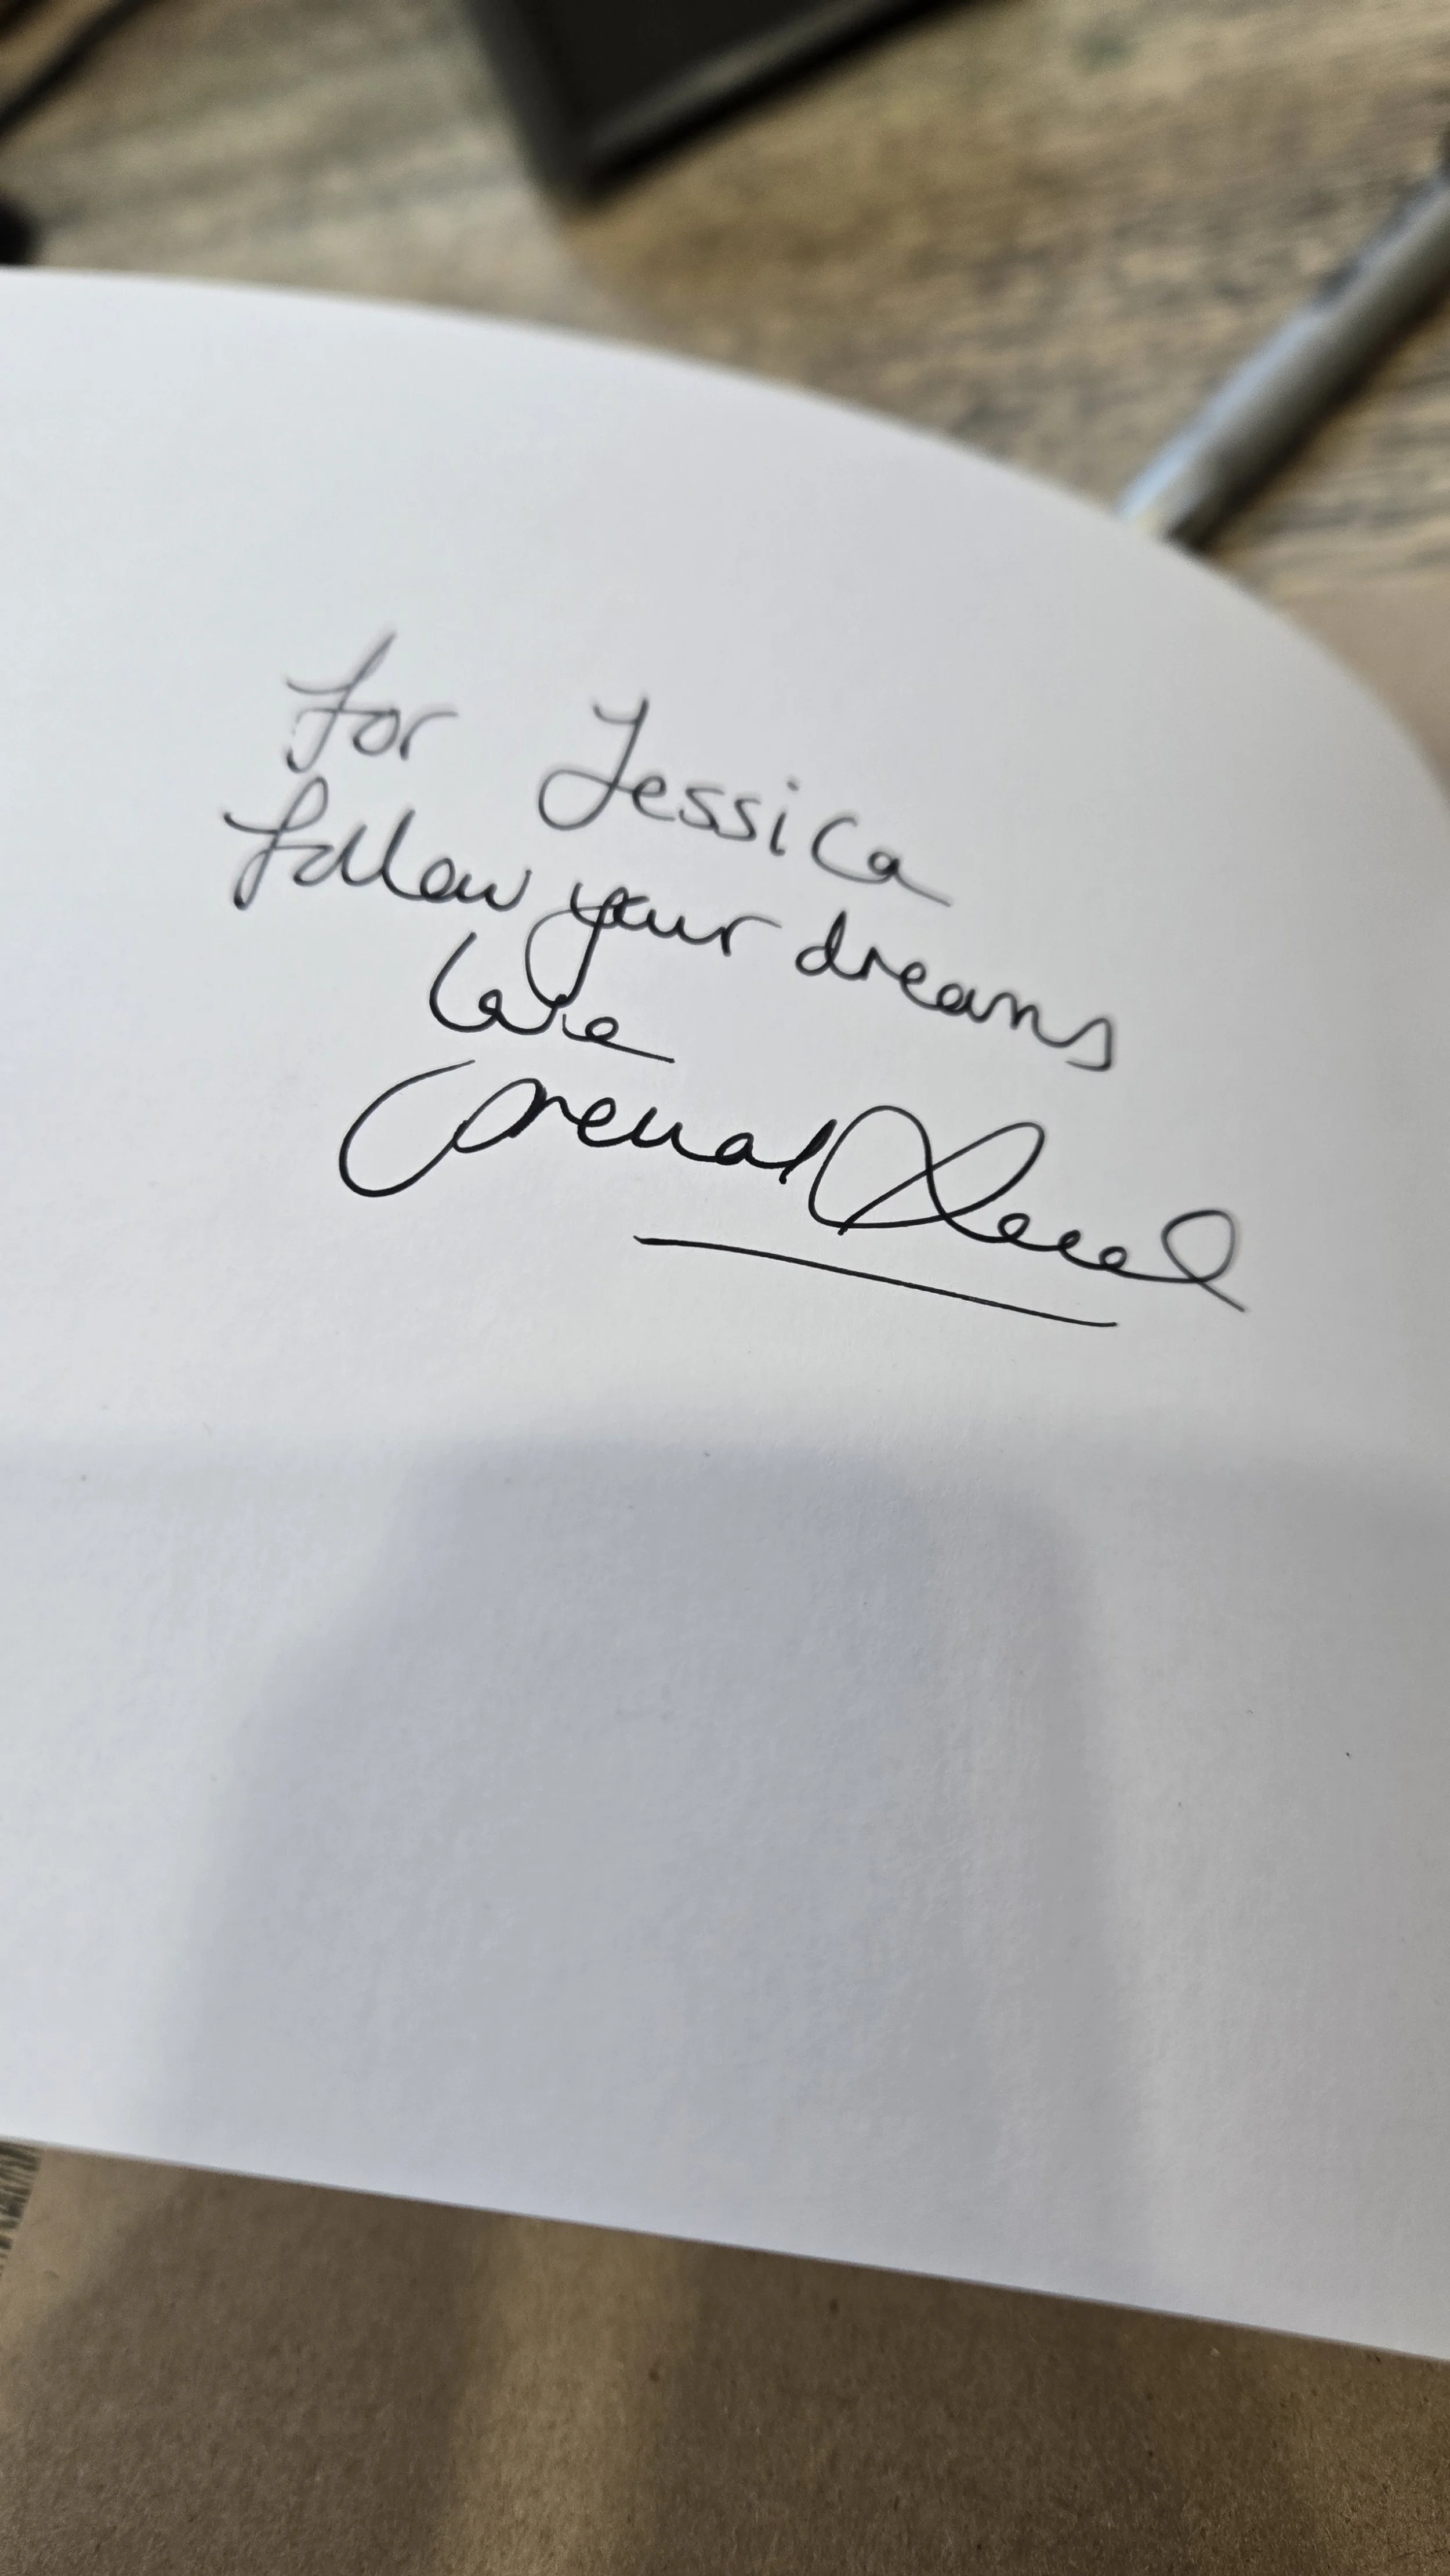 For Jessica
follow your dreams
Love